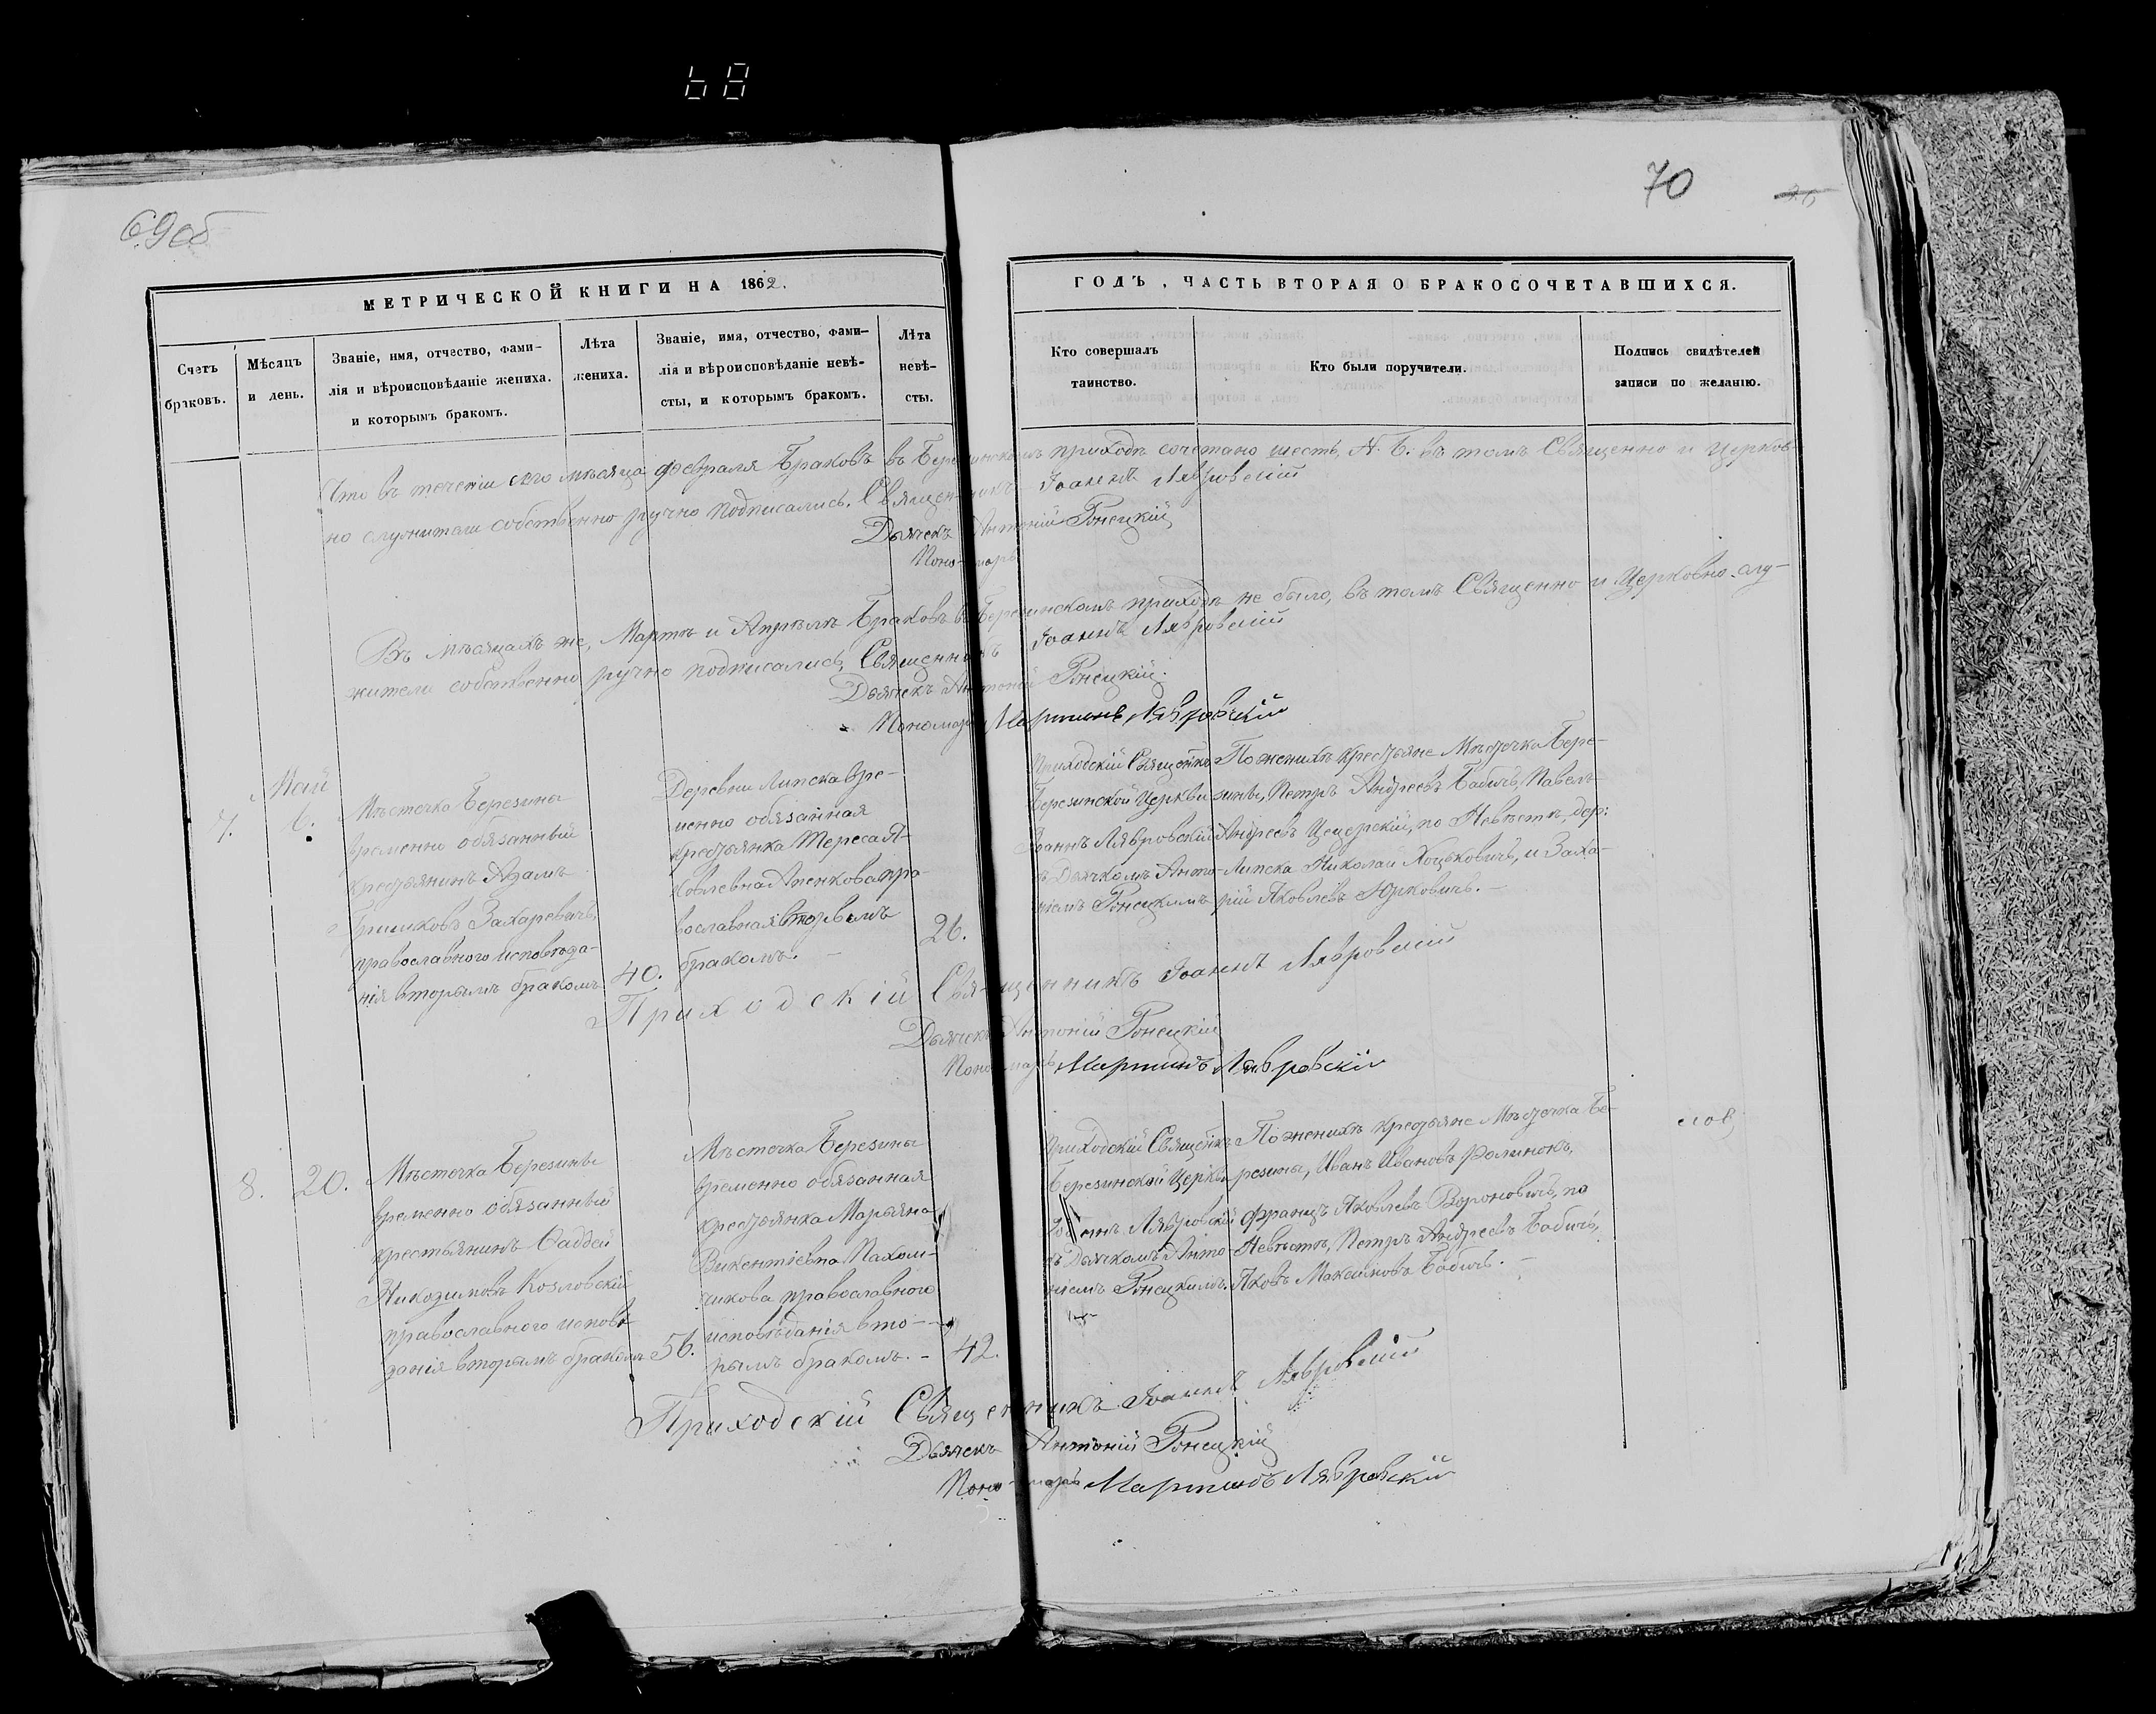 68
69об
МЕТРИЧЕСКОЙ КНИГИ НА 1862.
Счетъ
браковъ.
Мѣсяцъ
и день.
Званіе, имя, отчество, фами-
лія и вѣроисповѣданіе жениха.
и которымъ бракомъ.
Лѣта
жениха.
Званіе, имя, отчество, фами-
лія и вѣроисповѣданіе невѣ-
сты, и которымъ бракомъ.
Лѣта
невѣ-
сты.
70
ГОДЪ, ЧАСТЬ ВТОРАЯ О БРАКОСОЧЕТАВШИХСЯ.
Кто совершалъ
таинство.
Кто были поручители.
Подпись свидѣтелей
записи по желанію.
Что въ теченіи сего мѣсяца февраля Браковъ въ Березинскомъ приходѣ сочетано шесть, №. 6. въ томъ Священно и церков-
но служители собственно ручно подписались. Священникъ Іоаннъ Лявровскій
Дьячекъ Антоній Гонецкій
Поно-марь
Въ мѣсяцахъ же, Мартѣ и Апрѣлѣ Браковъ въ Березинскомъ приходѣ не было, въ томъ Священно и Церковно-слу-
жители собственно ручно подписались, Священникъ Іоаннъ Лявровскій
Дьячекъ Антоній Гонецкій.
Пономарь Мартинъ Лявровскій
7.
Май
6.
Мѣстечка Березины
временно обязанный
крестьянинъ Адамъ
Захаревичъ,
православного исповѣда-
нія вторымъ бракомъ
40.
Деревни Липска вре-
менно обязанная
крестьянка Тереса Я-
ковлевна Апенкова пра-
вославная вторымъ
бракомъ.
26.
Приходскій Священникъ
Березинской Церкви
Іоаннъ Лявровскій
съ Дьячкомъ Анто-
ніемъ Гонецкимъ
По женихѣ крестьяне Мѣстечка Бере-
зины, Петръ Андреевъ Бабичъ, Павелъ
Андреевъ Цецерскій, по Невѣстѣ, дер:
Липска Николай Хоцьковичъ, и Заха-
рій Яковлевъ Юрковичъ.
Приходскій Священникъ Іоаннъ Лявровскій
Дьячекъ Антоній Гонецкій
Пономарь Мартинъ Лявровскій
8.
20.
Мѣстечка Березины
временно обязанный
крестьянинъ Фаддей
Никодимовъ Козловскій
православного исповѣ-
данія вторымъ бракомъ
56.
Мѣстечка Березины
временно обязанная
крестьянка Марьяна
Викентіевна Пахом-
чикова православного
исповѣданія вто-
рымъ бракомъ.
42.
Приходскій Священникъ
Березинской Церкви
Іоаннъ Лявровскій
съ Дьячкомъ Анто-
ніемъ Гонецкимъ.
По женихѣ крестьяне Мѣстечка Бе-
резины, Иванъ Ивановъ Фолинокъ,
Францъ Яковлевъ Вороновичъ, по
Невѣстѣ, Петръ Андреевъ Бабичъ,
Яковъ Максимовъ Бабичъ.
Приходскій Священникъ Іоаннъ Лявровскій
Дьячекъ Антоній Гонецкій
Поно-марь Мартинъ Лявровскій